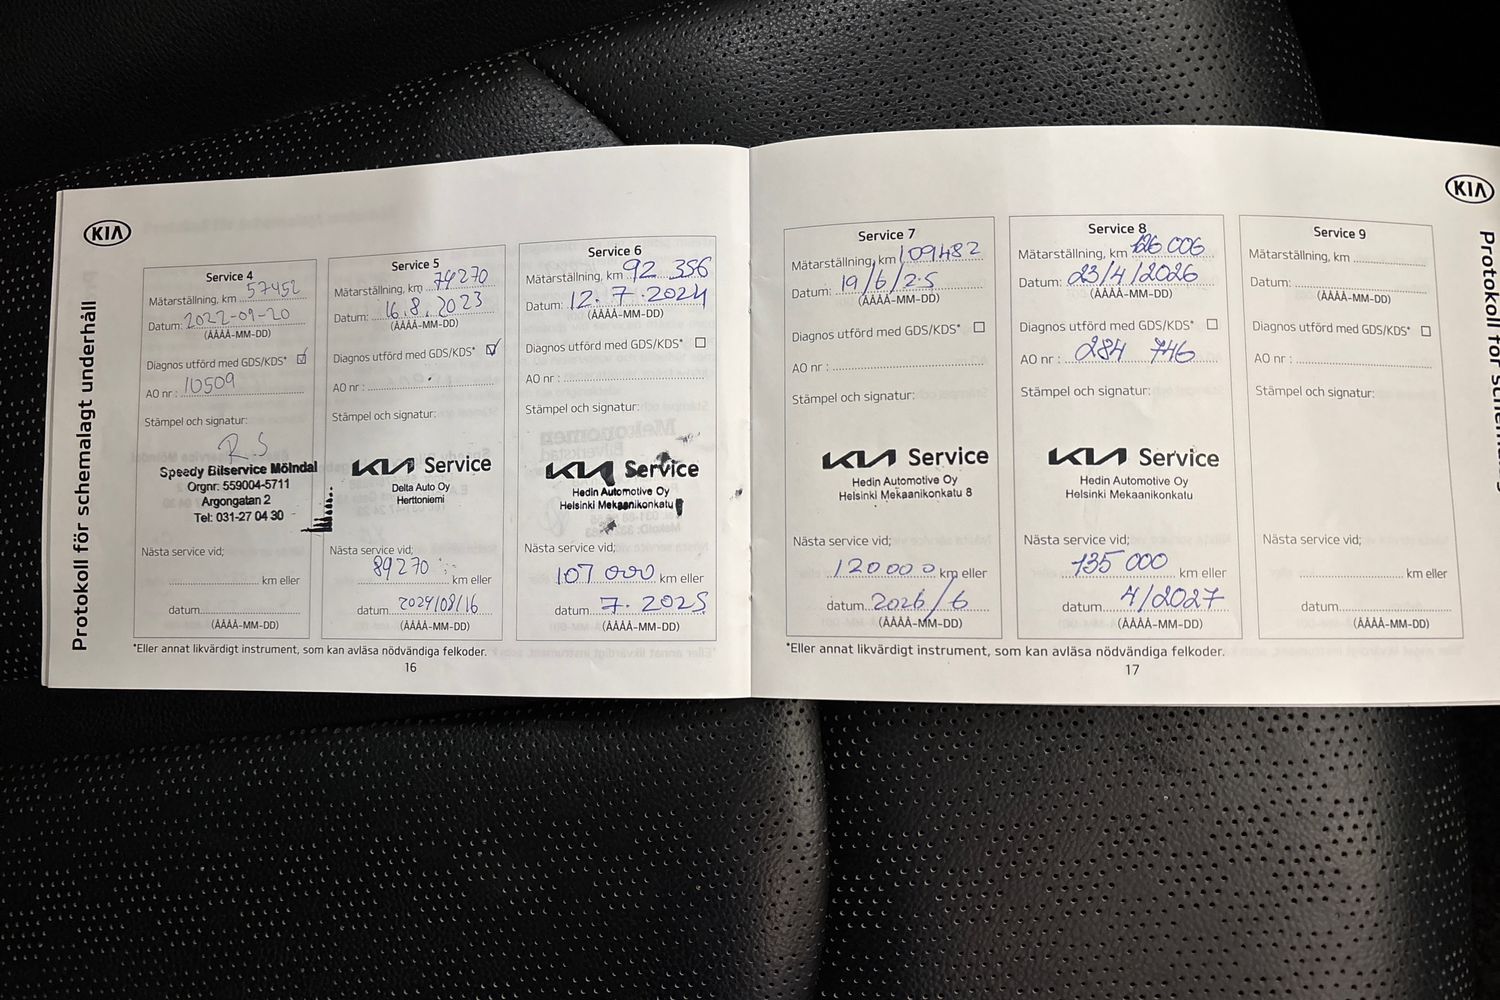 KIA
Protokoll för schemalagt underhåll
Service 4
Mätarställning, km 57452
Datum: 2022-09-20
(ÅÅÅÅ-MM-DD)
Diagnos utförd med GDS/KDS*
AO nr : 10509
Stämpel och signatur:
R.S
Speedy Bilservice Mölndal
Orgnr: 559004-5711
Argongatan 2
Tel: 031-27 04 30
Nästa service vid;
km eller
datum
(ÅÅÅÅ-MM-DD)
Service 5
Mätarställning, km 74270
Datum: 16.8.2023
(ÅÅÅÅ-MM-DD)
Diagnos utförd med GDS/KDS*
AO nr :
Stämpel och signatur:
KIA Service
Delta Auto Oy
Herttoniemi
Nästa service vid;
89270 km eller
datum 2024/08/16
(ÅÅÅÅ-MM-DD)
Service 6
Mätarställning, km 92 356
Datum: 12.7.2024
(ÅÅÅÅ-MM-DD)
Diagnos utförd med GDS/KDS*
AO nr :
Stämpel och signatur:
KIA Service
Hedin Automotive Oy
Helsinki Mekaanikonkatu
Nästa service vid;
107 000 km eller
datum 7.2025
(ÅÅÅÅ-MM-DD)
*Eller annat likvärdigt instrument, som kan avläsa nödvändiga felkoder.
16
Service 7
Mätarställning, km 109482
Datum: 19/6/25
(ÅÅÅÅ-MM-DD)
Diagnos utförd med GDS/KDS*
AO nr :
Stämpel och signatur:
KIA Service
Hedin Automotive Oy
Helsinki Mekaanikonkatu 8
Nästa service vid;
120000 km eller
datum 2026/6
(ÅÅÅÅ-MM-DD)
Service 8
Mätarställning, km 126 006
Datum: 23/4/2026
(ÅÅÅÅ-MM-DD)
Diagnos utförd med GDS/KDS*
AO nr : 284 746
Stämpel och signatur:
KIA Service
Hedin Automotive Oy
Helsinki Mekaanikonkatu
Nästa service vid;
135 000 km eller
datum 4/2027
(ÅÅÅÅ-MM-DD)
Service 9
Mätarställning, km
Datum:
(ÅÅÅÅ-MM-DD)
Diagnos utförd med GDS/KDS*
AO nr :
Stämpel och signatur:
Nästa service vid;
km eller
datum
(ÅÅÅÅ-MM-DD)
*Eller annat likvärdigt instrument, som kan avläsa nödvändiga felkoder.
17
KIA
Protokoll för